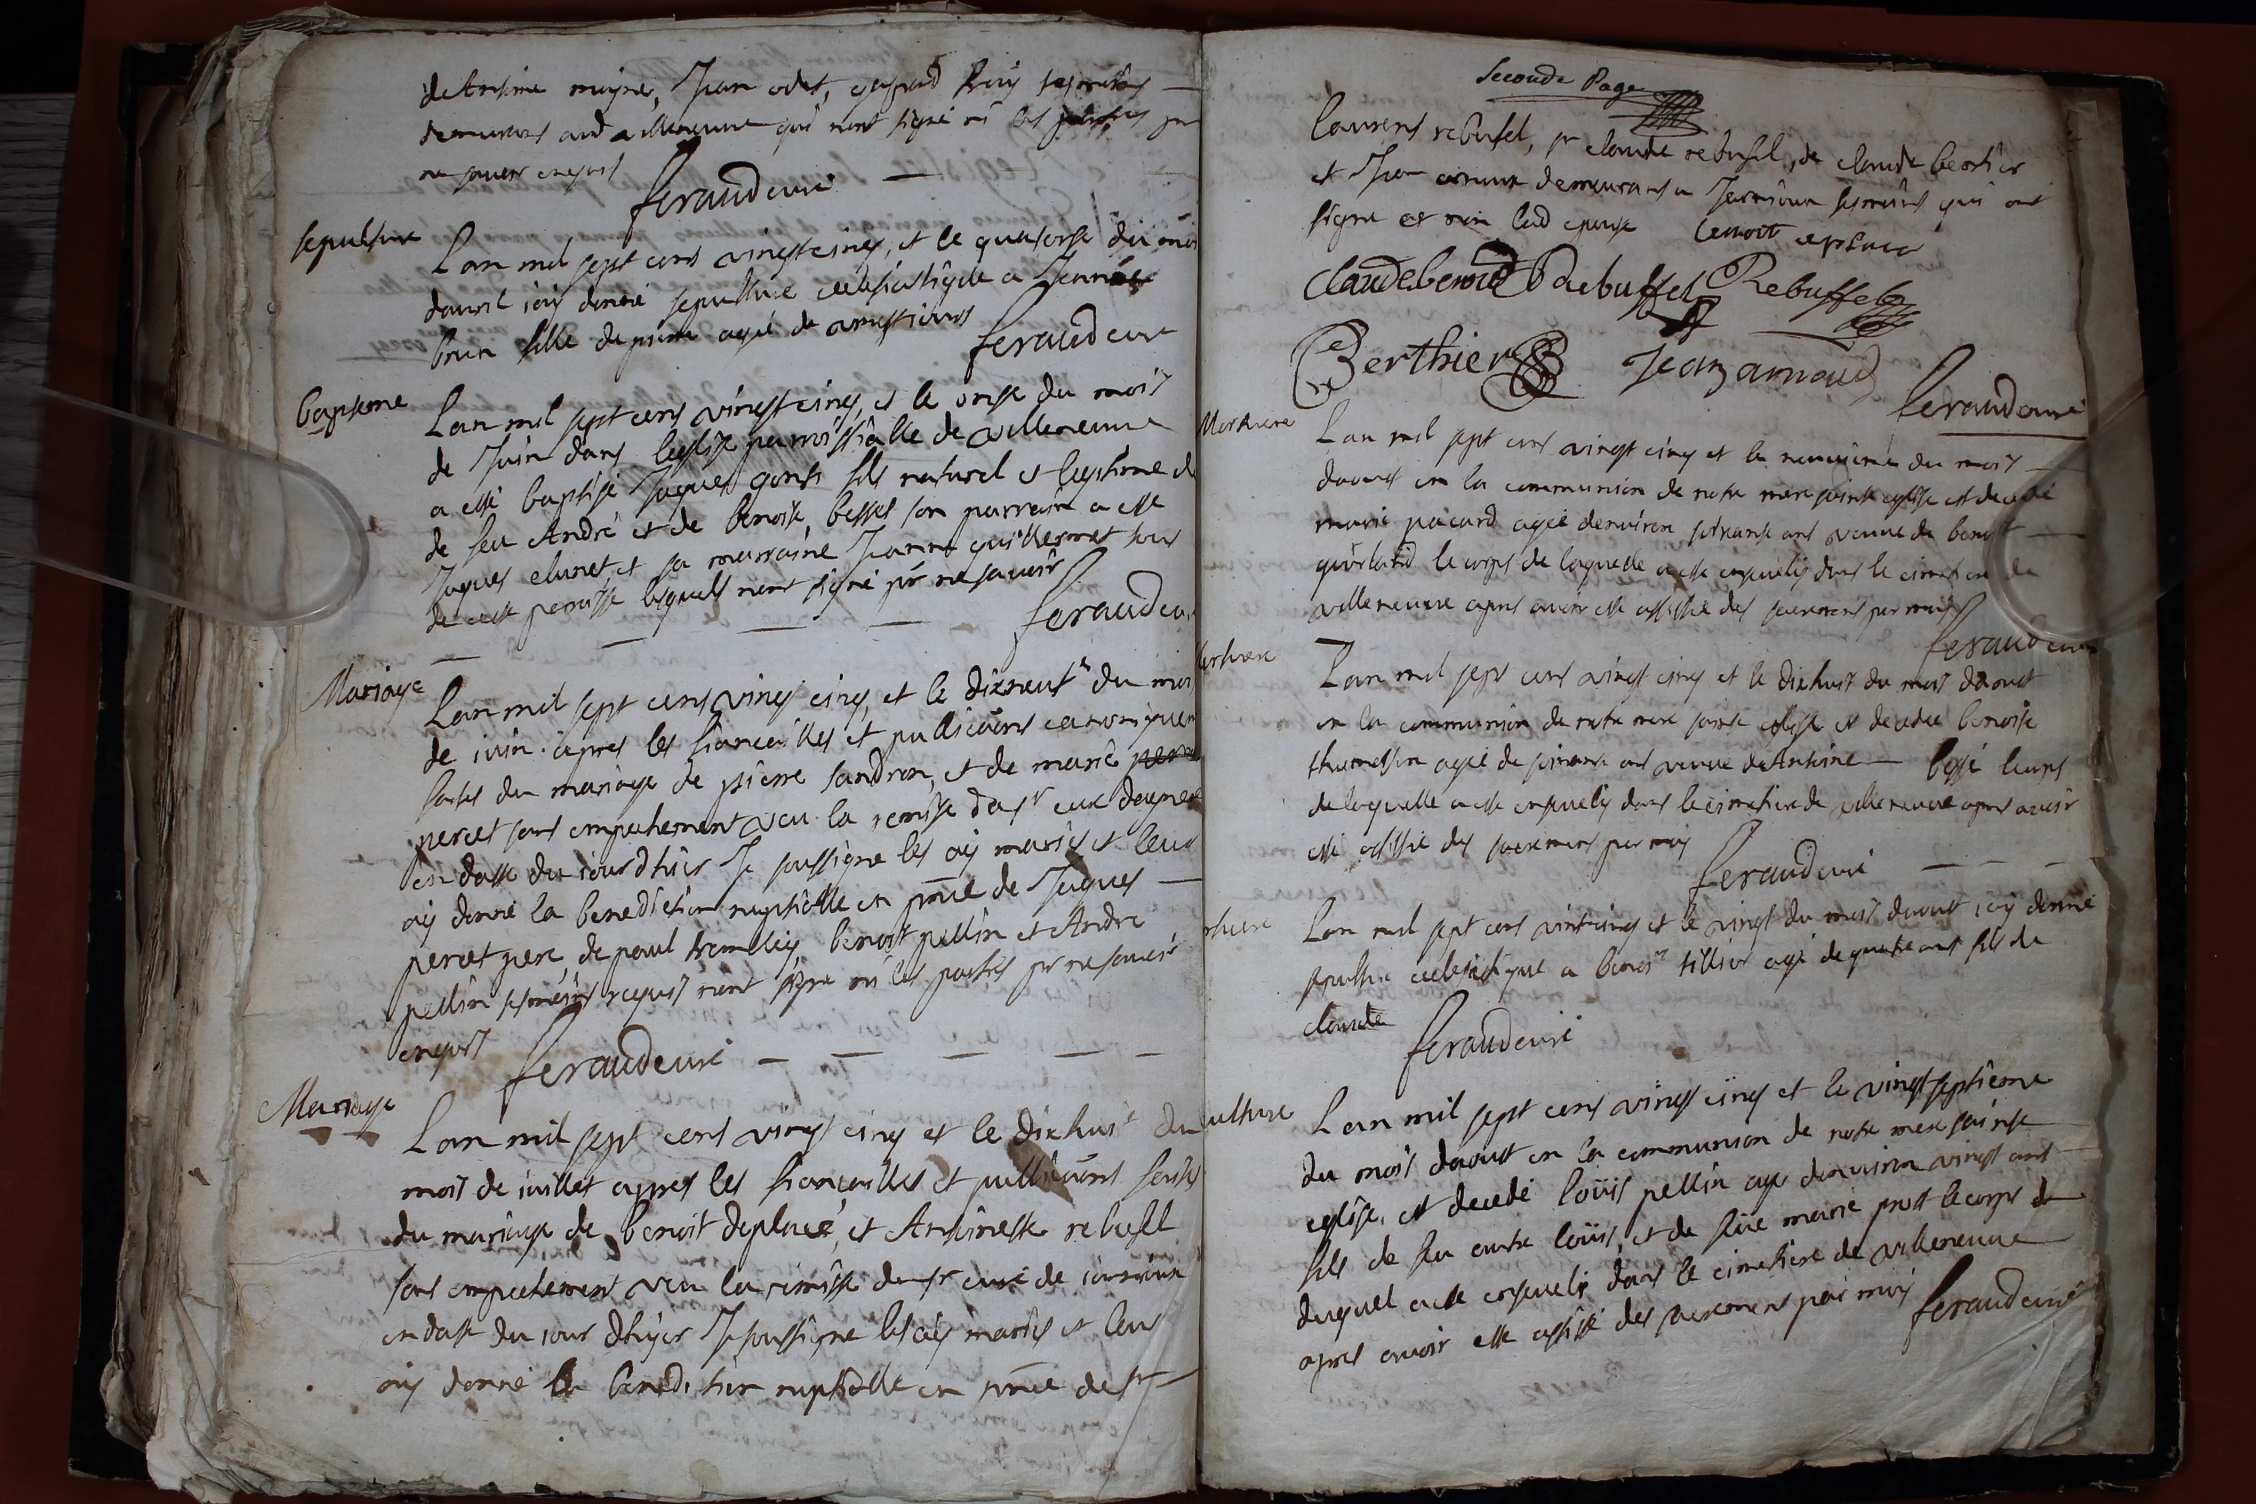 de Antoine moyne, Jean odet, tesmoins
demeurans aud villeneuve qui nont signé ni les parties pr
ne scavoir enquis
feraud curé
sepulture
Lan mil sept cens vingt cinq, et le quatorse du mois
davril iay donné sepulture ecclesiastique a Jeanne
brun fille de pierre agée de
feraud curé
bapteme
Lan mil sept cens vingt cinq, et le onse du mois
de Juin dans leglise parroissialle de villeneuve
a esté baptisé Jaques fils naturel et legitime
de feu André et de benoite besset son parrain a esté
Jaques et sa marraine Jeanne guillermet tous
de cette paroisse lesquels nont signé pr ne scavoir
feraud curé
Mariage
Lan mil sept cens vingt cinq, et le dixneufe du mois
de iuin apres les fiançailles et publicaôns canoniquem
faites du mariage de pierre sandron, et de marie
percet sans empechement veu la remise de sr curé
en datte du iourdhier Je soussigne les ay mariés et leur
ay donné la benediction nuptialle en pñce de Jaques
percet pere, de paul trembley, benoit pellin et André
pellin tesmoins requis nont signe ni les parties pr ne scavoir
enquis
feraud curé
Mariage
Lan mil sept cens vingt cinq et le dixhuit du
mois de iuillet apres les fiançailles et publicaôns faites
du mariage de benoit deplacé, et Antoinette rebufel
sans empechement veu la remise du sr curé de
en datte du iour dhyer Je soussigne les ay mariés et leur
ay donné la benediction nuptialle en pñce de sr
Seconde Page
laurens rebufel, sr claude rebufel, de claude bertier
et Jean arnaux demeurans a tesmoins qui ont
signe et non lad epouse benoit deplace
Claude benoid Rebuffel Rebuffel
Berthier Jean arnaud
feraud curé
Mortuere
Lan mil sept cens vingt cinq et le neuvieme du mois
daoust en la communion de notre mere sainte eglise est decedé
marie pacard agée denviron soixante ans veuve de benoit
le corps de laquelle a esté enseveli dans le cimetiere de
villeneuve apres avoir esté assistée des sacremens par moy
feraud curé
Lan mil sept cens vingt cinq et le dixhuit du mois daoust
en la communion de notre mere sainte eglise est decedée benoite
agée de soixante ans veuve de Antoine bessé le corps
de laquelle a esté ensevely dans le cimetiere de villeneuve apres avoir
esté assistée des sacremens par moy
feraud curé
Lan mil sept cens vintcinq et le vingt du mois daoust iay donné
sepulture eclesiastique a benoit tillier agé de quatre ans fils de
claude
feraud curé
Lan mil sept cens vingt cinq et le vingtseptieme
du mois daoust en la communion de notre mere sainte
eglise, est decedé loüis pellin agé denviron vingt ans
fils de feu autre loüis, et de füe marie prost le corps
duquel a esté enseveli dans le cimetiere de villeneuve
apres avoir esté assisté des sacremens par moy
feraud curé